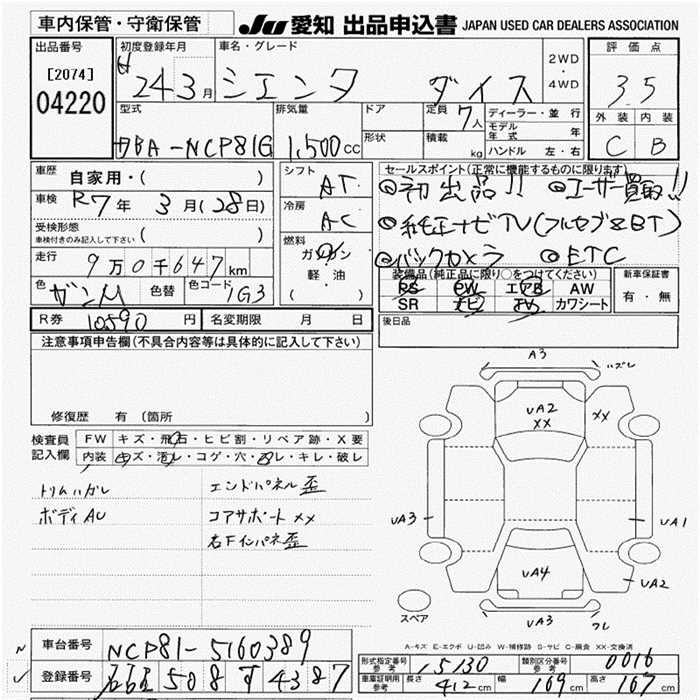 車内保管・守衛保管
JU 愛知 出品申込書 JAPAN USED CAR DEALERS ASSOCIATION
出品番号
[2074]
04220
初度登録年月
H 24 3月
車名・グレード
シエンタ ダイス
2WD
・
4WD
評価点
3.5
外装 内装
C B
型式
DBA-NCP81G
排気量
1,500cc
ドア
形状
定員 7人
積載 kg
ディーラー・並行
モデル年式 年
ハンドル 左・右
車歴
自家用・( )
車検 R7年 3月(28日)
受検形態
車検付きのみ記入して下さい ( )
走行 9万0千647km
色 ガンM 色替 色コード 1G3
シフト AT
冷房 A-C
燃料 ガソリン
軽・油
( ・ )
セールスポイント(正常に機能するものに限ります)
◎初出品!! ◎ユーザー買取!!
◎純正ナビTV(フルセグ&BT)
◎バックカメラ ◎ETC
装備品(純正品に限り○をつけてください)
PS PW エアB AW
SR ナビ TV カワシート
新車保証書
有・無
後日品
R券 10590円 名変期限 月 日
注意事項申告欄(不具合内容等は具体的に記入して下さい)
修復歴 有(箇所 )
検査員記入欄
FW キズ・飛石・ヒビ割・リペア跡・X要
内装 キズ・汚レ・コゲ・穴・スレ・キレ・破レ
トリムハガレ エンドパネル歪
ボディAU コアサポートXX
右Fインパネ歪
A3
ハズレ
UA2
XX
XX
UA3
UA1
UA4
UA2
UA3
ワレ
スペア
A-キズ E-エクボ U-凹み W-補修跡 S-サビ C-腐食 XX-交換済
車台番号 NCP81-5160389
登録番号 508 す 4387
型式指定番号 参考 15130 類別区分番号 参考 0016
車庫証明用 参考 長さ 412cm 幅 169cm 高さ 167cm